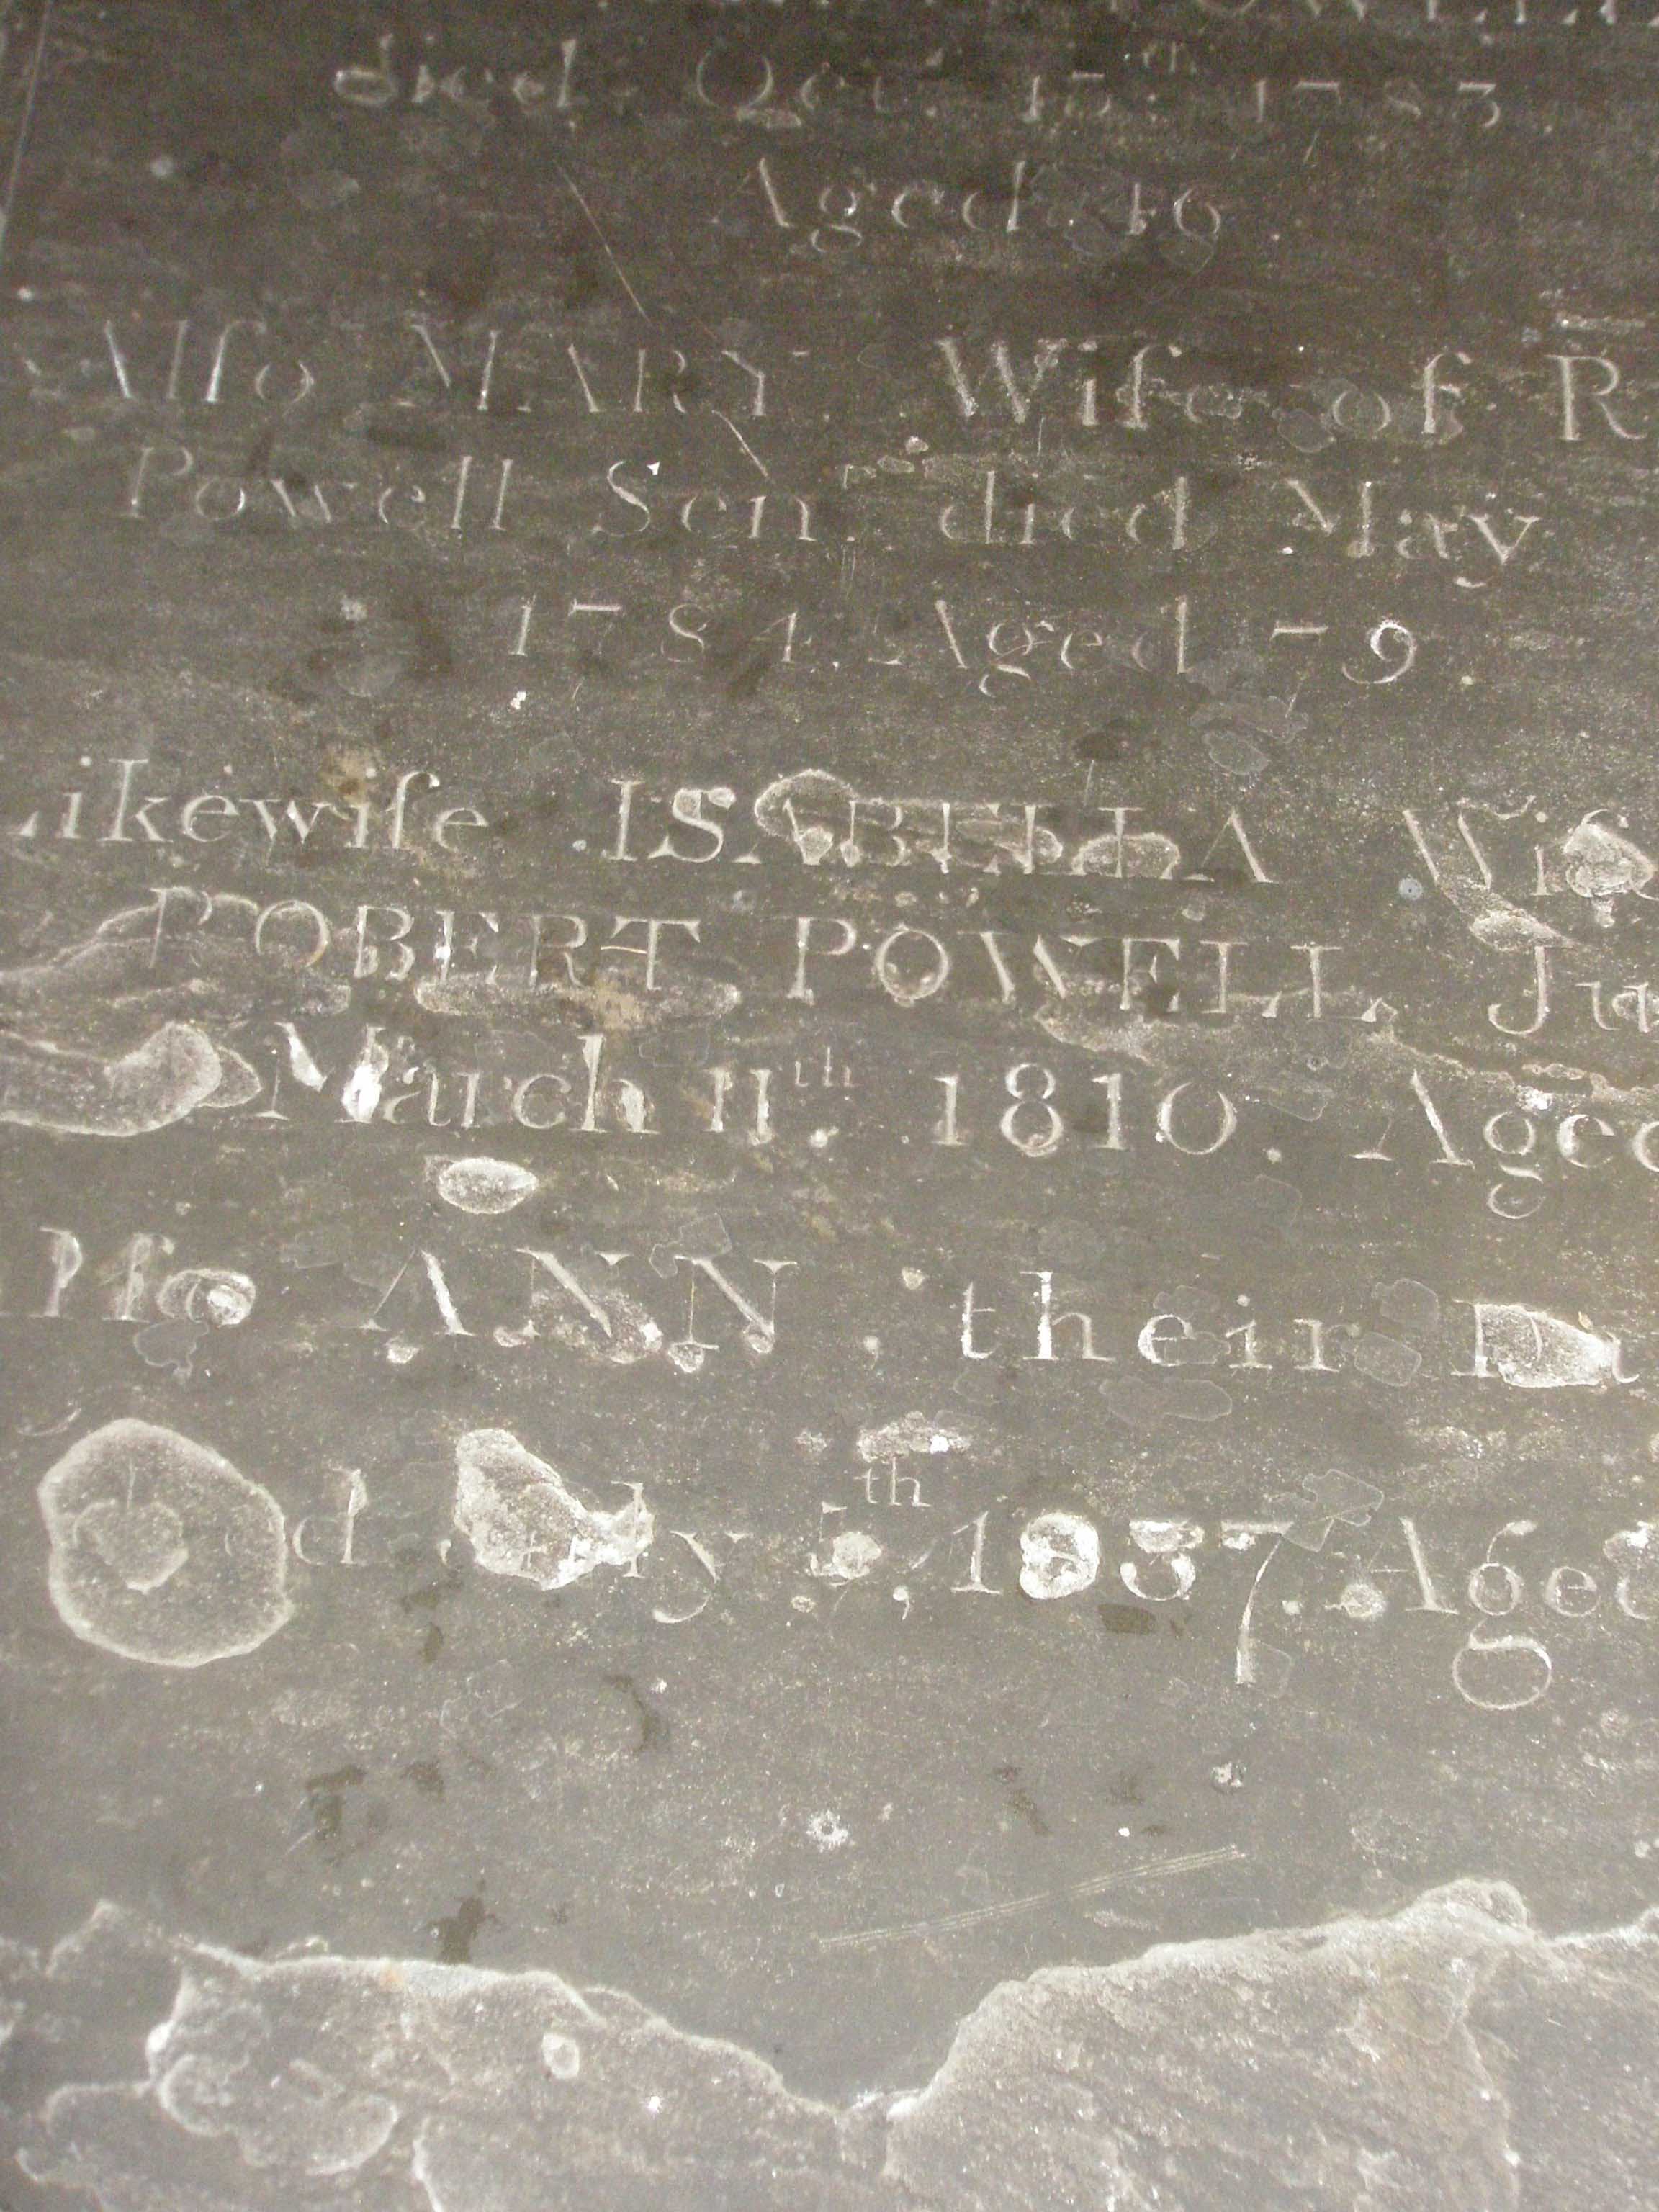 died Oct. 15th 1783
Aged 49
Alſo MARY Wife of R
Powell Senr. died May
1784. Aged 79
Likewiſe ISABELLA Wif
ROBERT POWELL Ju
March 11th 1810. Aged
Alſo ANN their
5th, 1837. Aged